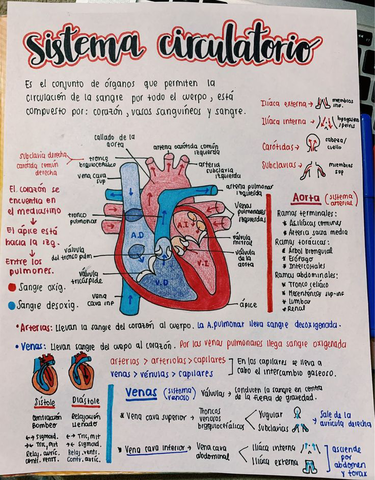 Sistema circulatorio
Es el conjunto de órganos que permiten la
circulación de la sangre por todo el cuerpo, está
compuesto por: corazón, vasos sanguíneos y sangre.
Ilíaca externa → miembros inf.
Ilíaca interna →
Carótidas → cabeza/cuello
Subclavias → miembros sup
callado de la
aorta
arteria carótida común
izquierda
subclavia derecha
carótida común
derecha
tronco
braquiocefálico
vena cava sup
arteria
subclavia
izquierda
arteria pulmonar
izquierda
El corazón se
encuentra en
el mediastino
El ápice está
hacia la izq.
Entre los
pulmones.
tronco
pulmonar
A.D
A.I
V.D
V.I
Venas
pulmonares
izquierda
válvula
mitral
válvula
de la
aorta
válvula
del tronco pulm
válvula
tricúspide
vena
cava inf
ápice
Sangre oxig.
Sangre desoxig.
Aorta (sistema arterial)
Ramas terminales:
Ilíacas comunes
Arteria sacra media
Ramas torácicas:
Árbol bronquial
Esófago
Intercostales
Ramas abdominales:
Tronco celíaco
Mesentérica sup-inf
Lumbar
Renal
Arterias: Llevan la sangre del corazón al cuerpo. La A.pulmonar lleva sangre desoxigenada.
Venas: Llevan sangre del cuepo al corazón. Por las venas pulmonares llega sangre oxigenada
arterias > arteriolas > capilares
venas > vénulas > capilares
En los capilares se lleva a
cabo el intercambio gaseoso.
Sístole
Diástole
contracción
Bombeo
Relajación
Llenado
Venas (sistema venoso)
Válvulas > conducen la sangre en contra
de la fuerza de gravedad.
Vena cava superior > Troncos
venosos
braquiocefálicos
Yugular
Subclavias
Sale de la
aurícula derecha
Vena cava inferior > Vena cava
abdominal
Ilíaca interna
Ilíaca externa
asciende por
abdomen
y tórax